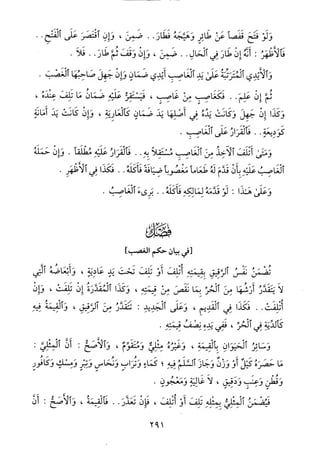 وَلَوْ فَتَحَ قَفَصاً عَنْ طَائِرٍ وَهَيَّجَهُ فَطَارَ.. ضَمِنَ ، وَإِنِ اقْتَصَرَ عَلَى الْفَتْحِ..
فَالأَظْهَرُ : أَنَّهُ إِنْ طَارَ فِي الْحَالِ.. ضَمِنَ ، وَإِنْ وَقَفَ ثُمَّ طَارَ.. فَلاَ .
وَالأَيْدِي الْمُتَرَتِّبَةُ عَلَىٰ يَدِ الْغَاصِبِ أَيْدِي ضَمَانٍ وَإِنْ جَهِلَ صَاحِبُهَا الْغَصْبَ .
ثُمَّ إِنْ عَلِمَ.. فَكَغَاصِبٍ مِنْ غَاصِبٍ ، فَيَسْتَقِرُّ عَلَيْهِ ضَمَانُ مَا تَلِفَ عِنْدَهُ ،
وَكَذَا إِنْ جَهِلَ وَكَانَتْ يَدُهُ فِي أَصْلِهَا يَدَ ضَمَانٍ كَالْعَارِيَةِ ، وَإِنْ كَانَتْ يَدَ أَمَانَةٍ
كَوَدِيعَةٍ.. فَالْقَرَارُ عَلَى الْغَاصِبِ .
وَمَتَىٰ أَتْلَفَ الآخِذُ مِنَ الْغَاصِبِ مُسْتَقِلاًّ بِهِ.. فَالْقَرَارُ عَلَيْهِ مُطْلَقاً . وَإِنْ حَمَلَهُ
الْغَاصِبُ عَلَيْهِ بِأَنْ قَدَّمَ لَهُ طَعَاماً مَغْصُوباً ضِيَافَةً فَأَكَلَهُ.. فَكَذَا فِي الأَظْهَرِ .
وَعَلَىٰ هَـٰذَا : لَوْ قَدَّمَهُ لِمَالِكِهِ فَأَكَلَهُ.. بَرِىءَ الْغَاصِبُ .
فَصْلٌ
[في بيان حكم الغصب]
تُضْمَنُ نَفْسُ الرَّقِيقِ بِقِيمَتِهِ أُتْلِفَ أَوْ تَلِفَ تَحْتَ يَدٍ عَادِيَةٍ ، وَأَبْعَاضُهُ الَّتِي
لاَ يَتَقَدَّرُ أَرْشُهَا مِنَ الْحُرِّ بِمَا نَقَصَ مِنْ قِيمَتِهِ ، وَكَذَا الْمُقَدَّرَةُ إِنْ تَلِفَتْ ، وَإِنْ
أُتْلِفَتْ.. فَكَذَا فِي الْقَدِيمِ ، وَعَلَى الْجَدِيدِ : تَتَقَدَّرُ مِنَ الرَّقِيقِ ، وَالْقِيمَةُ فِيهِ
كَالدِّيَةِ فِي الْحُرِّ ، فَفِي يَدِهِ نِصْفُ قِيمَتِهِ .
وَسَائِرُ الْحَيَوَانِ بِالْقِيمَةِ ، وَغَيْرُهُ مِثْلِيٌّ وَمُتَقَوَّمٌ ، وَالأَصَحُّ : أَنَّ الْمِثْلِيَّ :
مَا حَصَرَهُ كَيْلٌ أَوْ وَزْنٌ وَجَازَ السَّلَمُ فِيهِ ؛ كَمَاءٍ وَتُرَابٍ وَنُحَاسٍ وَتِبْرٍ وَمِسْكٍ وَكَافُورٍ
وَقُطْنٍ وَعِنَبٍ وَدَقِيقٍ ، لاَ غَالِيَةٍ وَمَعْجُونٍ .
فَيُضْمَنُ الْمِثْلِيُّ بِمِثْلِهِ تَلِفَ أَوْ أُتْلِفَ ، فَإِنْ تَعَذَّرَ.. فَالْقِيمَةُ ، وَالأَصَحُّ : أَنَّ
٢٩١